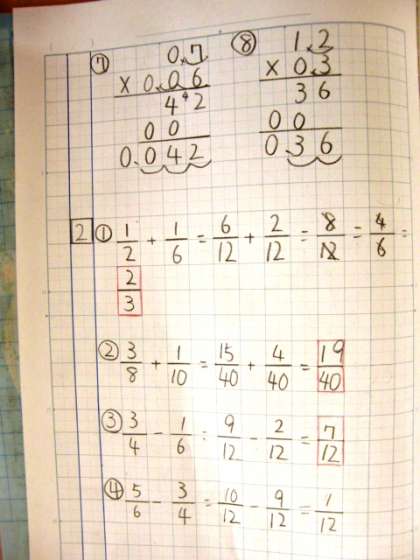 ⑦ 0.7 ⑧ 1.2
× 0.06 × 0.3
4 4 2 3 6
0 0 0 0
0.042 0.36
2 ① 1/2 + 1/6 = 6/12 + 2/12 = 8/12 = 4/6 =
2/3
② 3/8 + 1/10 = 15/40 + 4/40 = 19/40
③ 3/4 - 1/6 = 9/12 - 2/12 = 7/12
④ 5/6 - 3/4 = 10/12 - 9/12 = 1/12